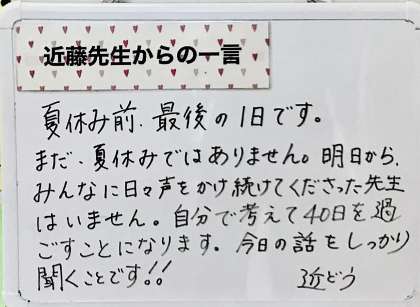 近藤先生からの一言
夏休み前、最後の1日です。
まだ、夏休みではありません。明日から、
みんなに日々声をかけ続けてくださった先生
はいません。自分で考えて40日を過
ごすことになります。今日の話をしっかり
聞くことです!!
近どう